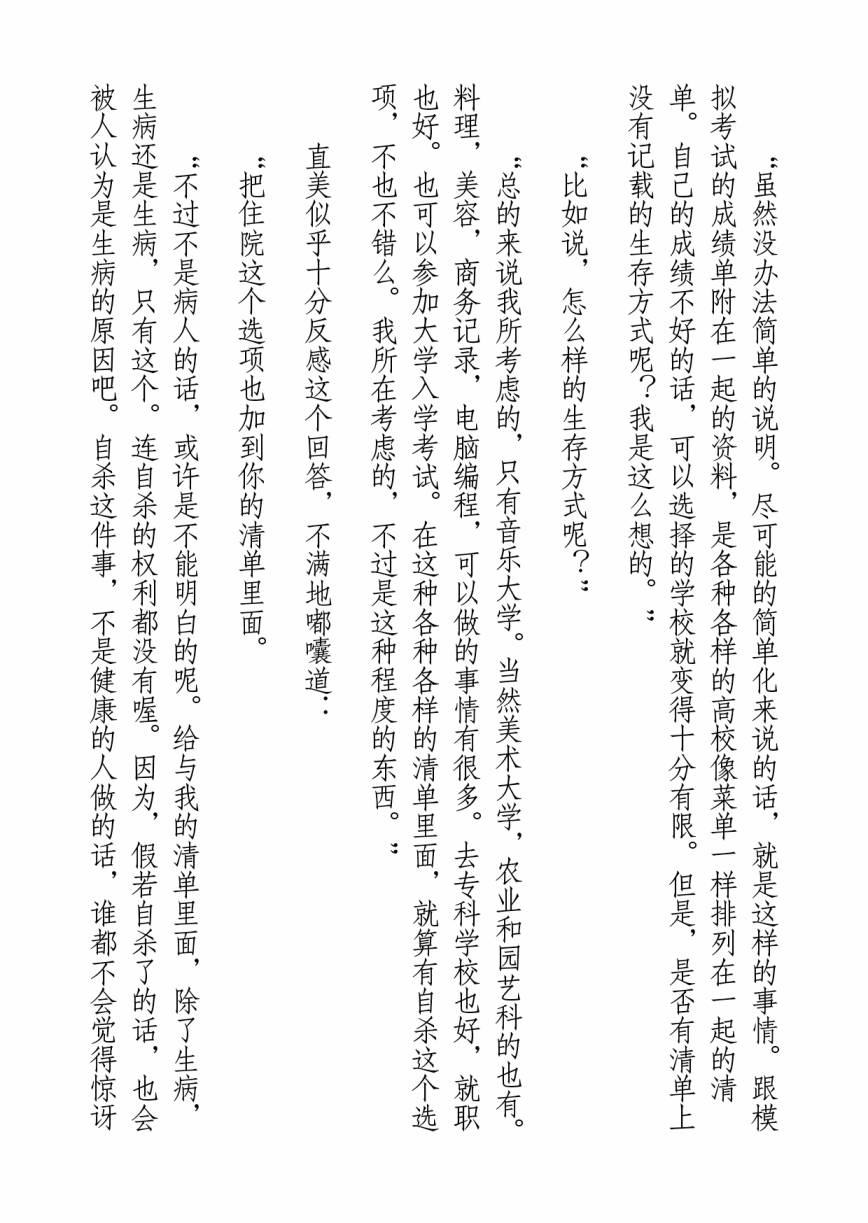 “虽然没办法简单的说明。尽可能的简单化来说的话，就是这样的事情。跟模
拟考试的成绩单附在一起的资料，是各种各样的高校像菜单一样排列在一起的清
单。自己的成绩不好的话，可以选择的学校就变得十分有限。但是，是否有清单上
没有记载的生存方式呢？我是这么想的。”
“比如说，怎么样的生存方式呢？”
“总的来说我所考虑的，只有音乐大学。当然美术大学，农业和园艺科的也有。
料理，美容，商务记录，电脑编程，可以做的事情有很多。去专科学校也好，就职
也好。也可以参加大学入学考试。在这种各种各样的清单里面，就算有自杀这个选
项，不也不错么。我所在考虑的，不过是这种程度的东西。”
直美似乎十分反感这个回答，不满地嘟囔道：
“把住院这个选项也加到你的清单里面。
“不过不是病人的话，或许是不能明白的呢。给与我的清单里面，除了生病，
生病还是生病，只有这个。连自杀的权利都没有喔。因为，假若自杀了的话，也会
被人认为是生病的原因吧。自杀这件事，不是健康的人做的话，谁都不会觉得惊讶